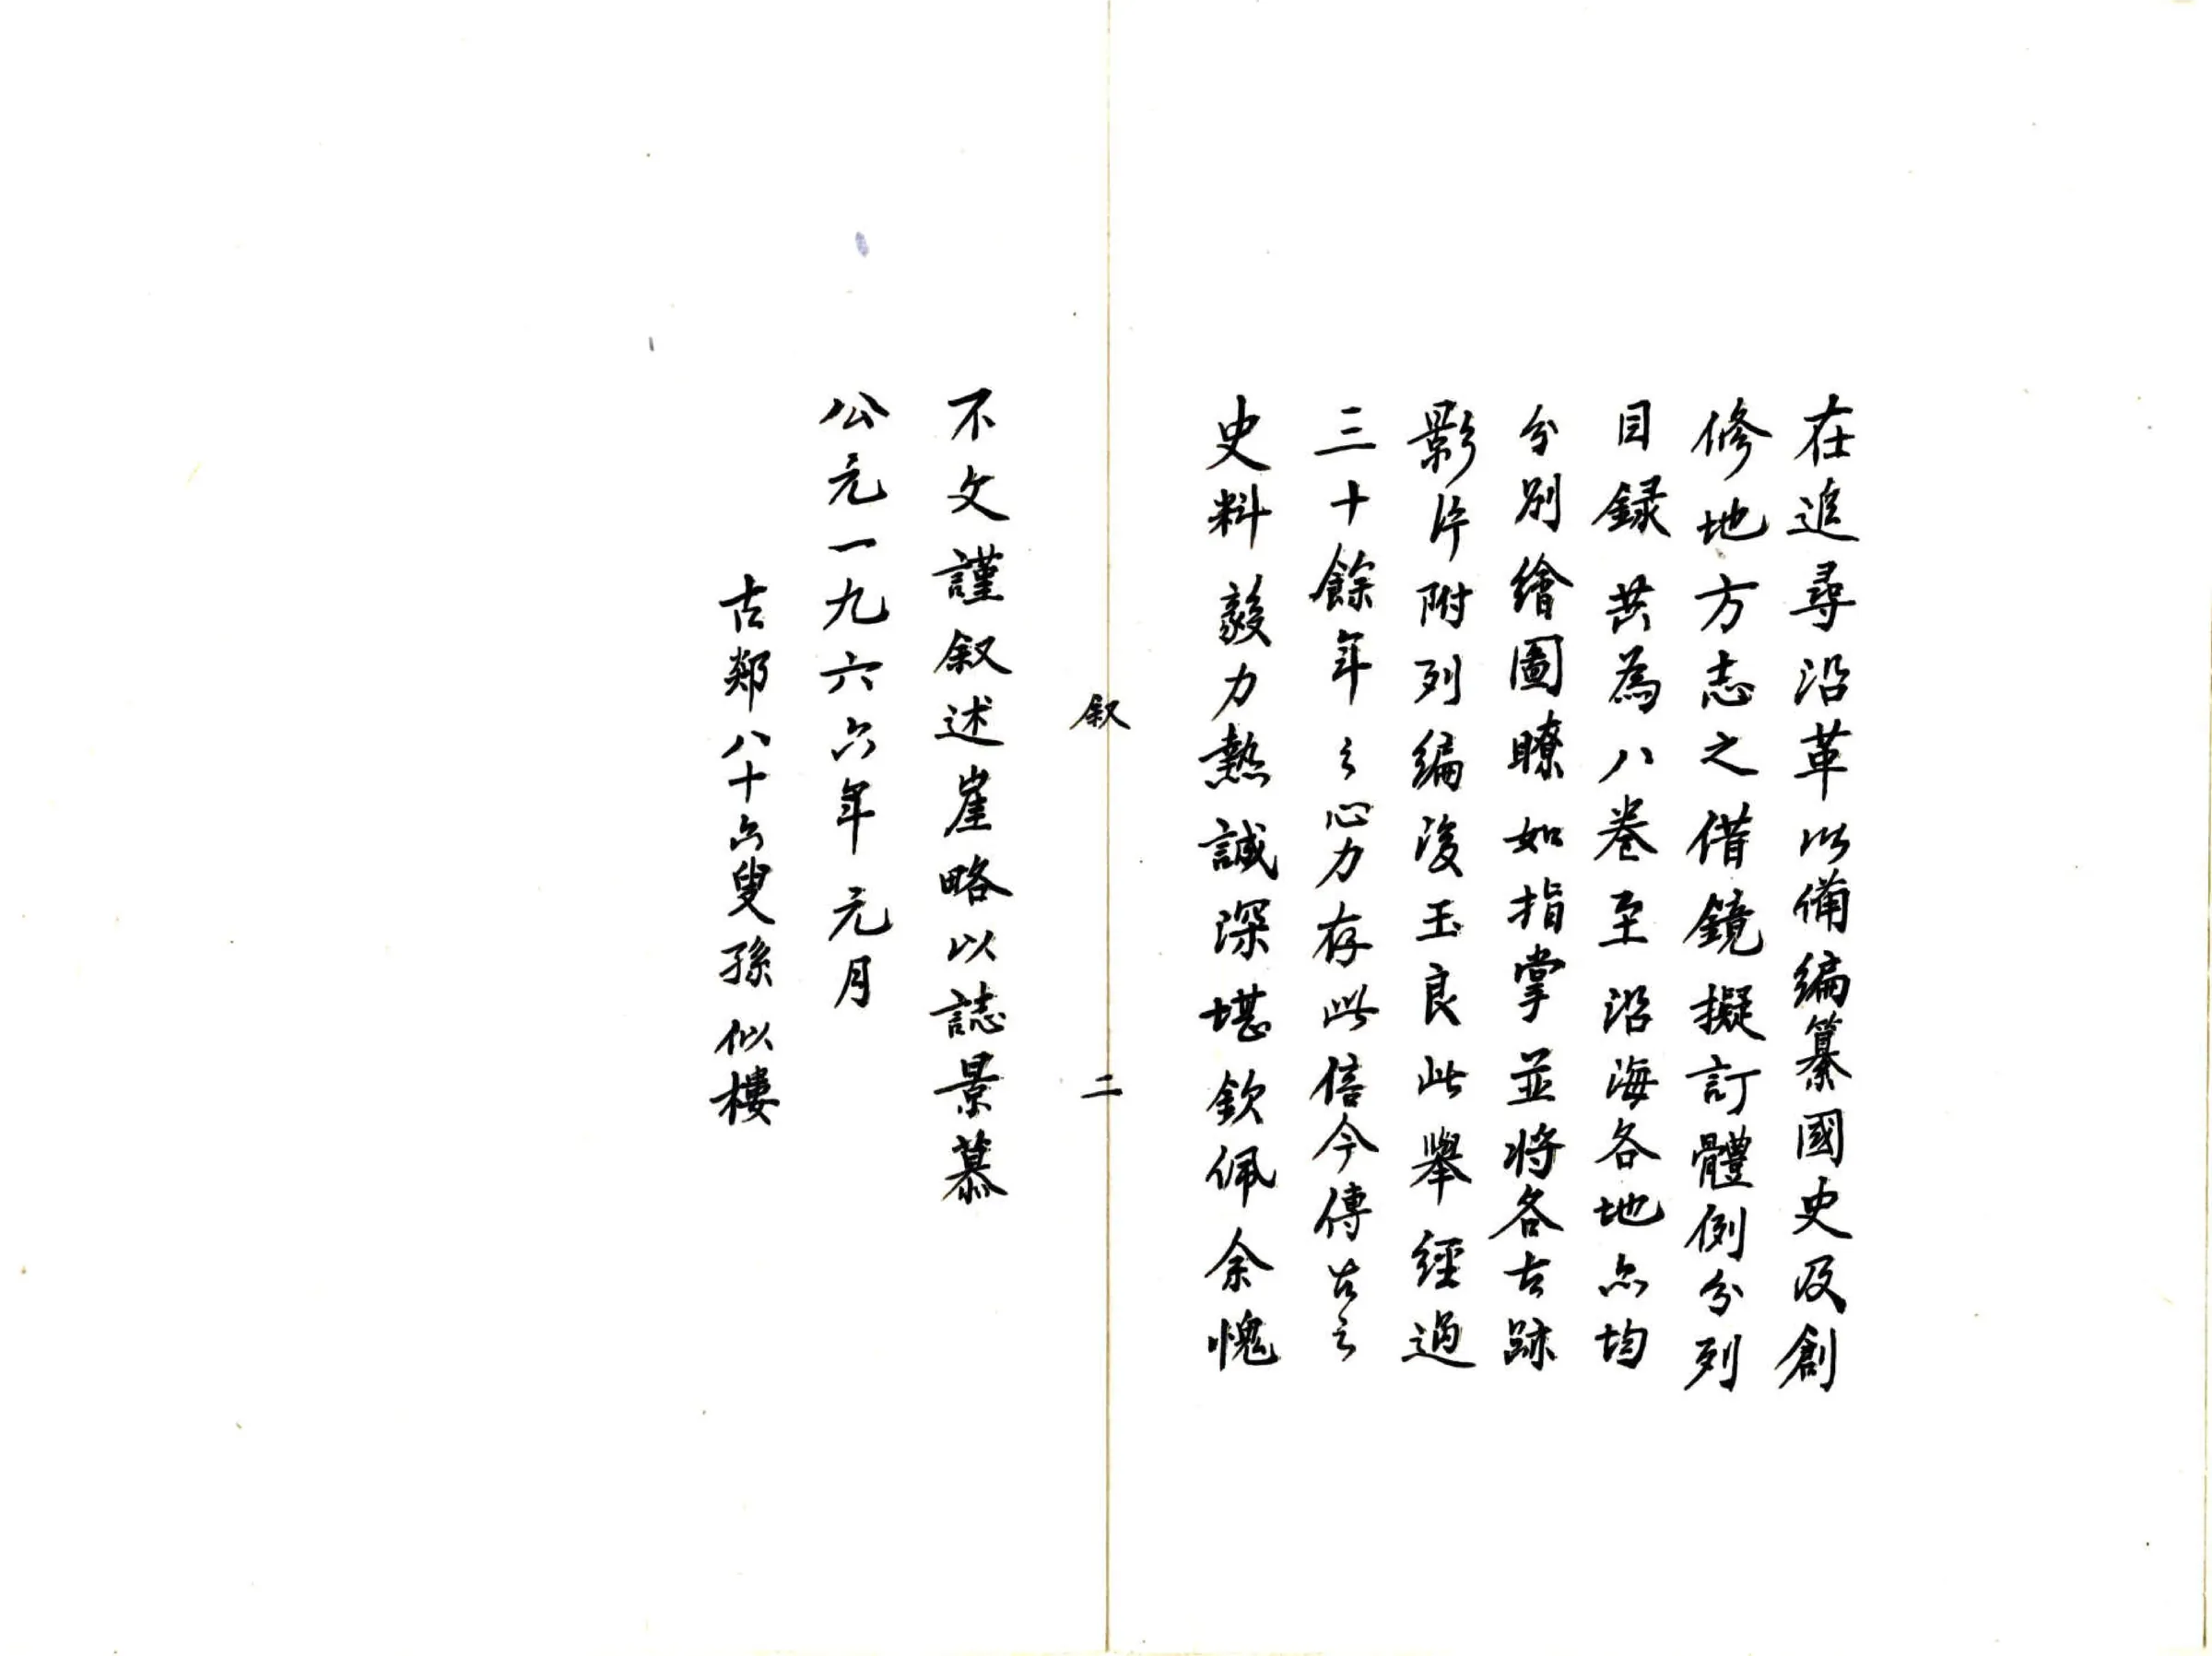 在追尋沿革以備編纂國史及創
修地方志之借鏡擬訂體例分列
目録共為八卷至沿海各地点均
分別繪圖瞭如指掌並將各古跡
影片附列編後玉良此舉經過
三十餘年之心力存此信今傳古之
史料毅力熱誠深堪欽佩余愧
叙 二
不文謹叙述崖略以誌景慕
公元一九六六年元月
古郯八十六叟孫似樓